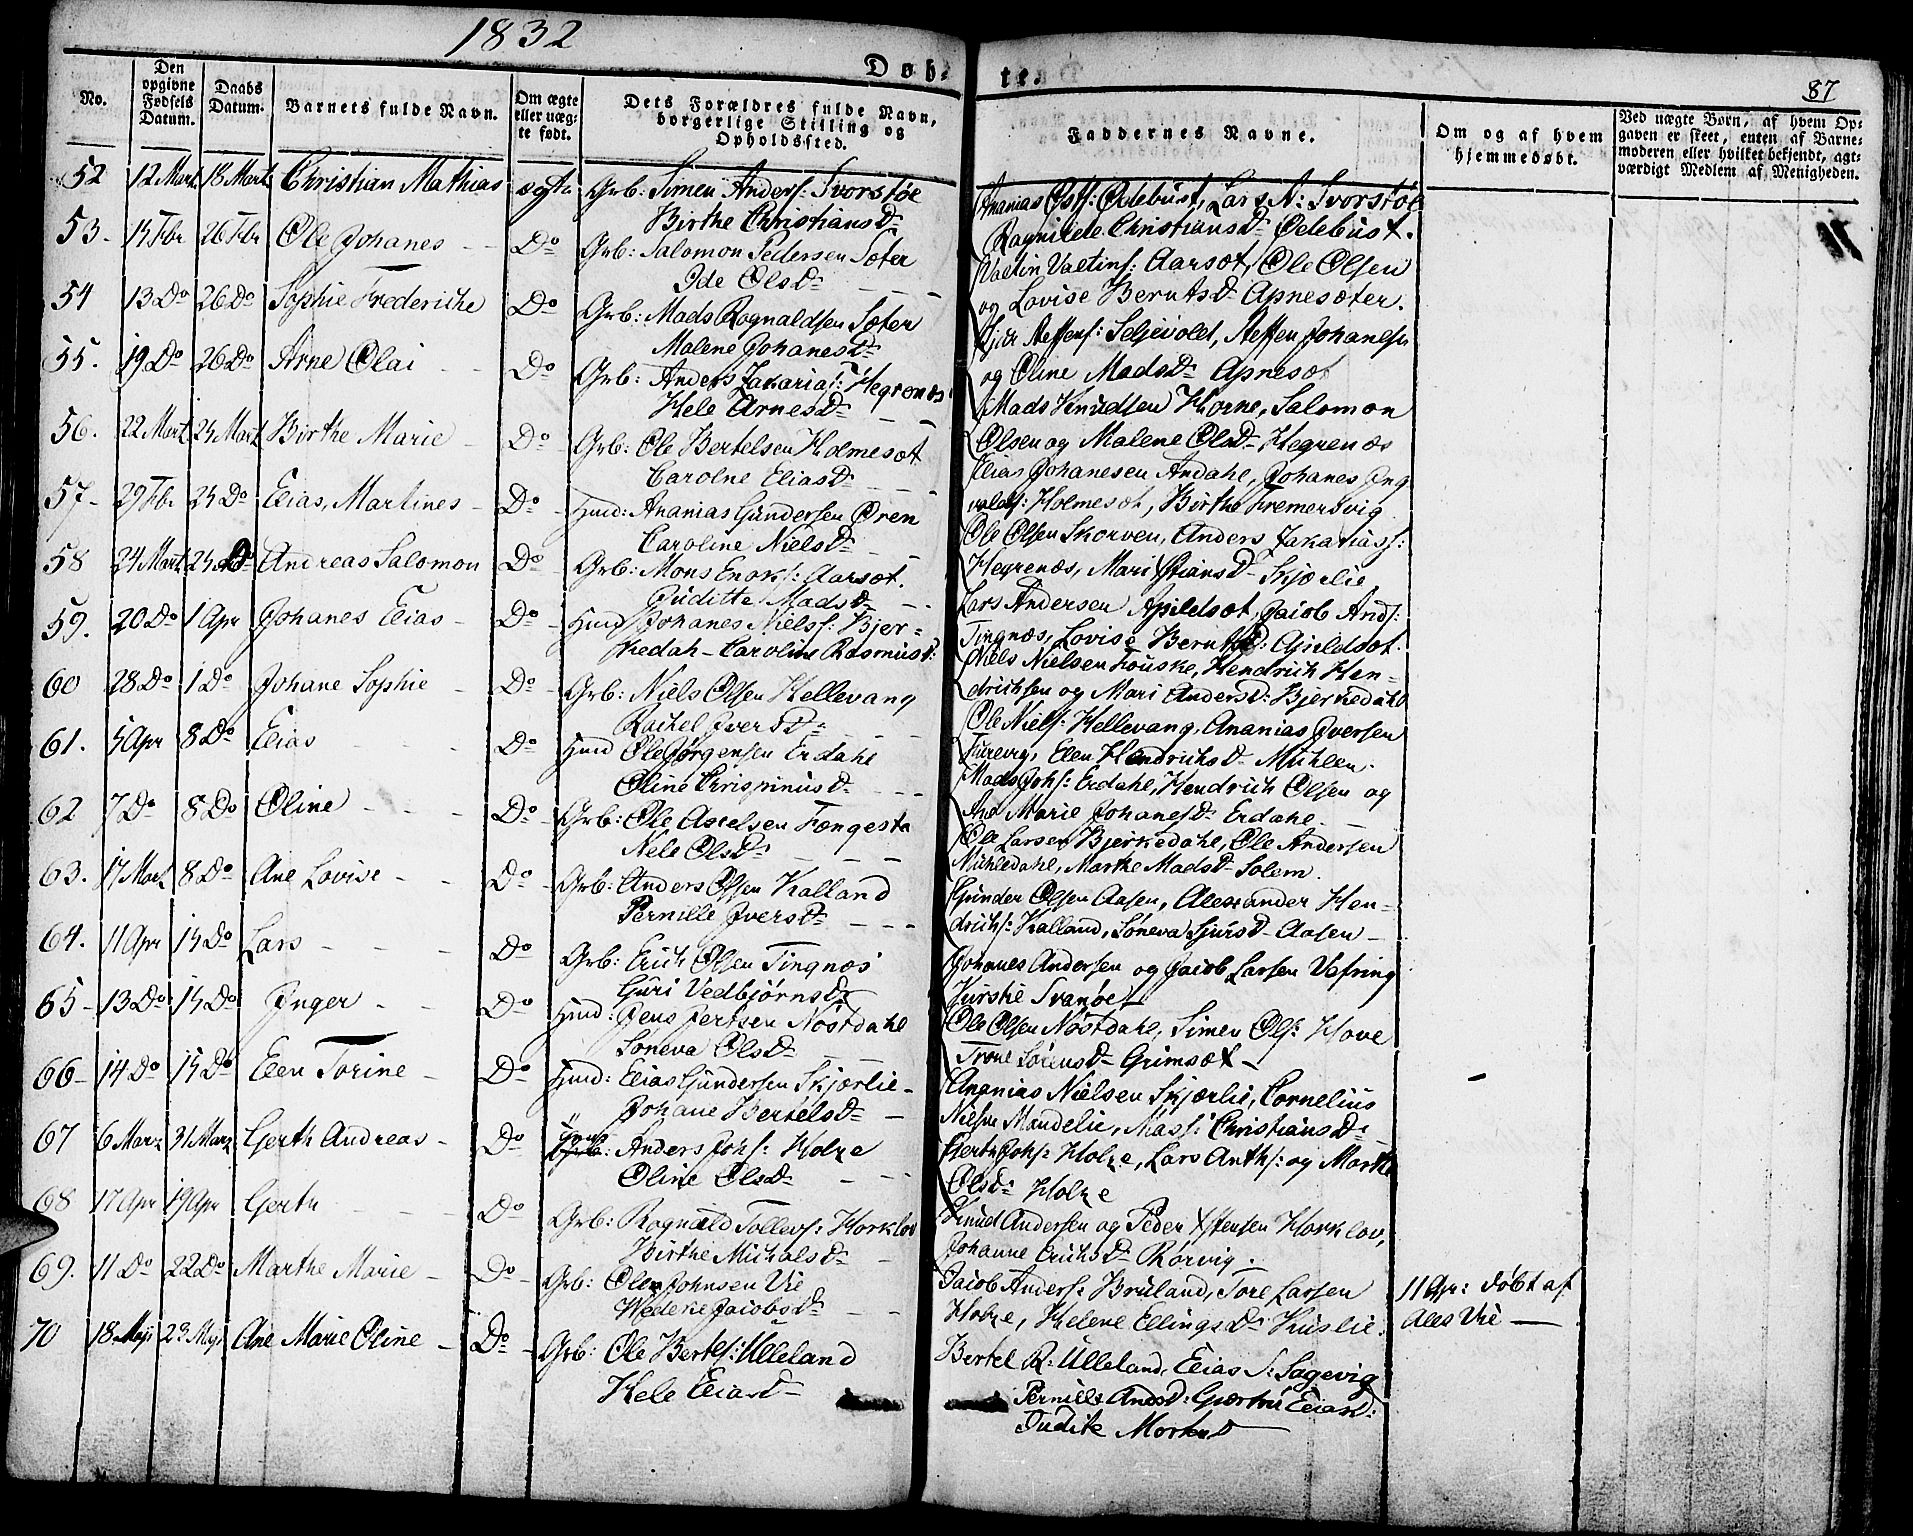 1832
Døb-
te.
87
No.
Den opgivne Fødsels Datum.
Daabs Datum.
Barnets fulde Navn.
Om ægte eller uægte født.
Dets Forældres fulde Navn, borgerlige Stilling og Opholdssted.
Faddernes Navne.
Om og af hvem hjemmedøbt.
Ved uægte Børn, af hvem Op-
gaven er skeet, enten af Barne-
moderen eller hvilket bekjendt, agt-
værdigt Medlem af Menigheden.
52 12 Mart 18 Mart Christian Mathias ægte Grb: Simen Anders: Svorstøe
Birthe Christians D
Ananias Ødebust, Lars A: Svorstøe
Ragnilde Christians D Ødebust.
53. 15 Fbr 26 Fbr Ole Johanes Do Grb: Salomon Pedersen Sæter
Ide Ols D
Valtin Valtins: Aarsæt, Ole Olsen
og Lovise Bernts D Apnesæter.
54 13 Do 26 Do Sophie Frederiche Do Grb: Mads Rognaldsen Sæter
Malene Johanes D
Steffens: Seljevold, Steffen Johanesen
og Oline Mads D Apnesæt
55. 19 Do 26 Do Arne Olai Do Grb: Anders Zakarias: Hegrenæs
Hele Arnes D
Mads Knudsen Horne, Salomon
Olsen og Malene Ols D Hegrenæs
56. 22 Mart 25 Mart Birthe Marie Do Grb: Ole Bertelsen Holmesæt
Carolne Elias D
Elias Johanesen Andahl, Johanes Ing
valds: Holmesæt, Birthe Fremersvig
57- 29 Fbr 25 Do Elias Martines Do Huusd: Ananias Gundersen Øren
Caroline Niels D
Ole Olsen Skorven, Anders Zakarias:
Hegrenæs, Mari D Skjærlie
58 24 Mart 25 Do Andreas Salomon Do Grb: Mons Enoks: Aarsæt.
Juditte Mads D
Lars Andersen Apildsæt, Jacob Ands:
Tingnæs, Lovise Bernts D: Apildsæt.
59. 20 Do 1 Apr Johanes Elias Do Huusd Johanes Niels: Bjer-
kedah- Caroline Rasmus D:
Niels Nielsen Fouske, Hendrich Hen-
drichsen og Mari Anders D: Bjerkedahl
60 28 Do 1 Do Johane Sophie Do Grb: Niels Olsen Hellevang
Rachel Ivers D
Ole Niels: Hellevang, Ananias Iversen
Elen Hendrichs D Muhlen.
61. 5 Apr 8 Do Elias Do Huusd Ole Jørgensen Erdahl
Oline Chrispinus D
Mads Johs: Erdahl, Hendrich Olsen og
Ane Marie Johanes D Erdahl
62 7 Do 8 Do Oline Do Grb: Ole Axelsen Fængestø
Nele Ols D
Ole Larsen Bjerkedahl, Ole Andersen
Muhledahl, Marthe Mads D Solem.
63. 17 Mart 8 Do Ane Lovise Do Grb: Anders Olsen Kalland
Pernille Ivers D
Gunder Olsen Aasen, Alexander Hen-
drichs: Kalland, Søneva Sjurs D Aasen
64. 11 Apr 15 Do Lars Do Grb: Erich Olsen Tingnæs
Guri Vedbjørns D
Johanes Andersen og Jacob Larsen Vefring
Svanøe
65- 13 Do 15 Do Inger Do Huusd: Jens Jertsen Nøstdahl
Søneva Ols D
Ole Olsen Nøstdahl, Simen Ols: Hove
Trone Sørens D Grimsæt
66- 14 Do 15 Do Elen Torine Do Huusd: Elias Gundersen Skjærlie
Johane Bertels D
Ananias Nielsen Skjærlie, Cornelius
Nielsen Mandelie, Christians D
67 6 Marz 31 Marz Gerth Andreas Do Anders Johs: Holze
Oline Ols D
Gerth Johs: Holze, Lars Anths: og Marthe
Ols D Holze
68 17 Apr 19 Apr Gerth Do Grb: Rognald Tollevs: Horklov
Birthe Michals D
Knud Andersen og Peder Horklov,
Johanne Erichs D Rørvig.
69. 11 Do 22 Do Marthe Marie Do Grb: Ole Johnsen Vie
Jacobs D
Jacob Anders: Bruland, Tore Larsen
Holze, Helene Ellings D Huslie.
11 Apr: døbt af
Ales Vie
70 18 Maji 23 Maji Ane Marie Oline Do Grb: Ole Bertels: Ulleland
Hele Elias D
Bertel R: Ulleland, Elias S: Sagevig
Pernille Ands D: Gjertru Elias D:
Judite D